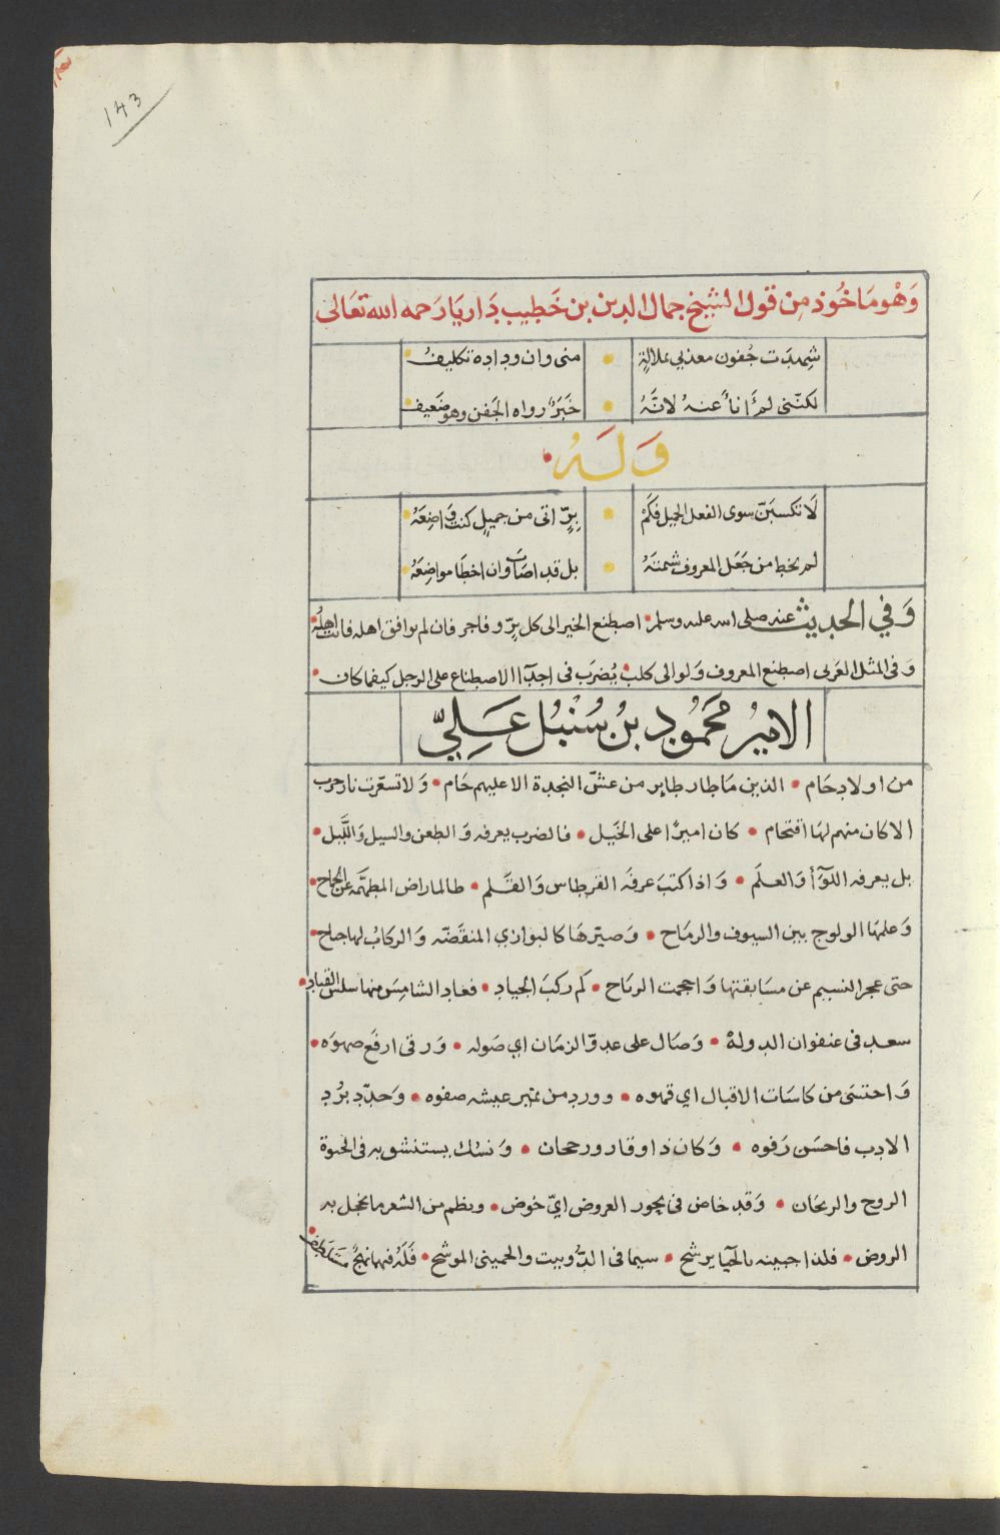 143
وَهْومَاخُوذ مِن قول الشيخ جمال الدين بن خَطِيب دَاريَا رَحمه الله تعَالى
شهِدَت جُفون معذبي بملالةٍ • منى وان وداده تكليفُ •
لكنّنى لم أنأ عنهُ لانَّهُ • خَبَرٌ رواه الجَفن وهو ضَعيف •
وَلَهُ •
لَا تكسبَنّ سوى الفعل الجميل فكَمْ • بِرٍّ اتى من جميلٍ كنت وَاضِعَهُ •
لم يخط من جَعَل المعروف شيمتَهُ • بل قد اصَابَ وان اخطَا مواضِعَهُ •
وَفي الحديث عنه صلى الله عليه وسلم • اصطنع الخير الى كل بِرّ و فاجر فان لم يوافق اهله فانت اهلُهُ •
وَفى المثل العَربى اصطنع المعروف وَلو الى كلب • يُضرَب فى اجدَآ الاصطناع على الرجل كيفما كان •
الاميُر محَمُود بنُ سُنْبُل عَلِيّ
من اولاد حَام • الذين مَا طار طاير من عشّ النجدة الا عليهم حَام • وَلا تسعّرت نار حرب
الا كان منهم لهَا اقتحام • كان اميرًا على الخَيل • فالضرب يعرفه وَالطعن والسيل وَاللَّيل •
بل يعرفه اللّوَآ وَالعلَم • وَاذا كتبَ عرفَه القرطاس وَالقَلم • طالما راض المطهّمَه عن الجماح •
وَعلمَها الولوج بين السيوف والرمَاح • وَصيّرهَا كالبوازي المنقَضّه وَالركابُ لها جناح •
حتى عجز النسيم عن مسَابقتها وَاحجمت الريَاح • كم ركبَ الجياد • فعَاد الشامِسَ منها سلس القيَاد •
سعد فى عنفوان الدولة • وَصَال على عدوّ الزمَان اي صَوله • وَرقى ارفَع صهوَه •
وَاحتسَى من كاسَات الاقبال اي قهوه • وورد من نمير عيشه صفوه • وَجدّد بُرْد
الادب فاحسَن رَفوه • وَكان ذا وقار ورجحان • وَنسك يستنشق به فى الخلوة
الروح والريحَان • وَقد خاض فى بحور العروض ايّ خوض • ونظم من الشعر ما يخجل به
الروض • فلذا جبينه بالحيَآ يرشح • سيما فى الدُّوبيت والحمينى الموشح • فَلَهُ فيهما نهجٌ